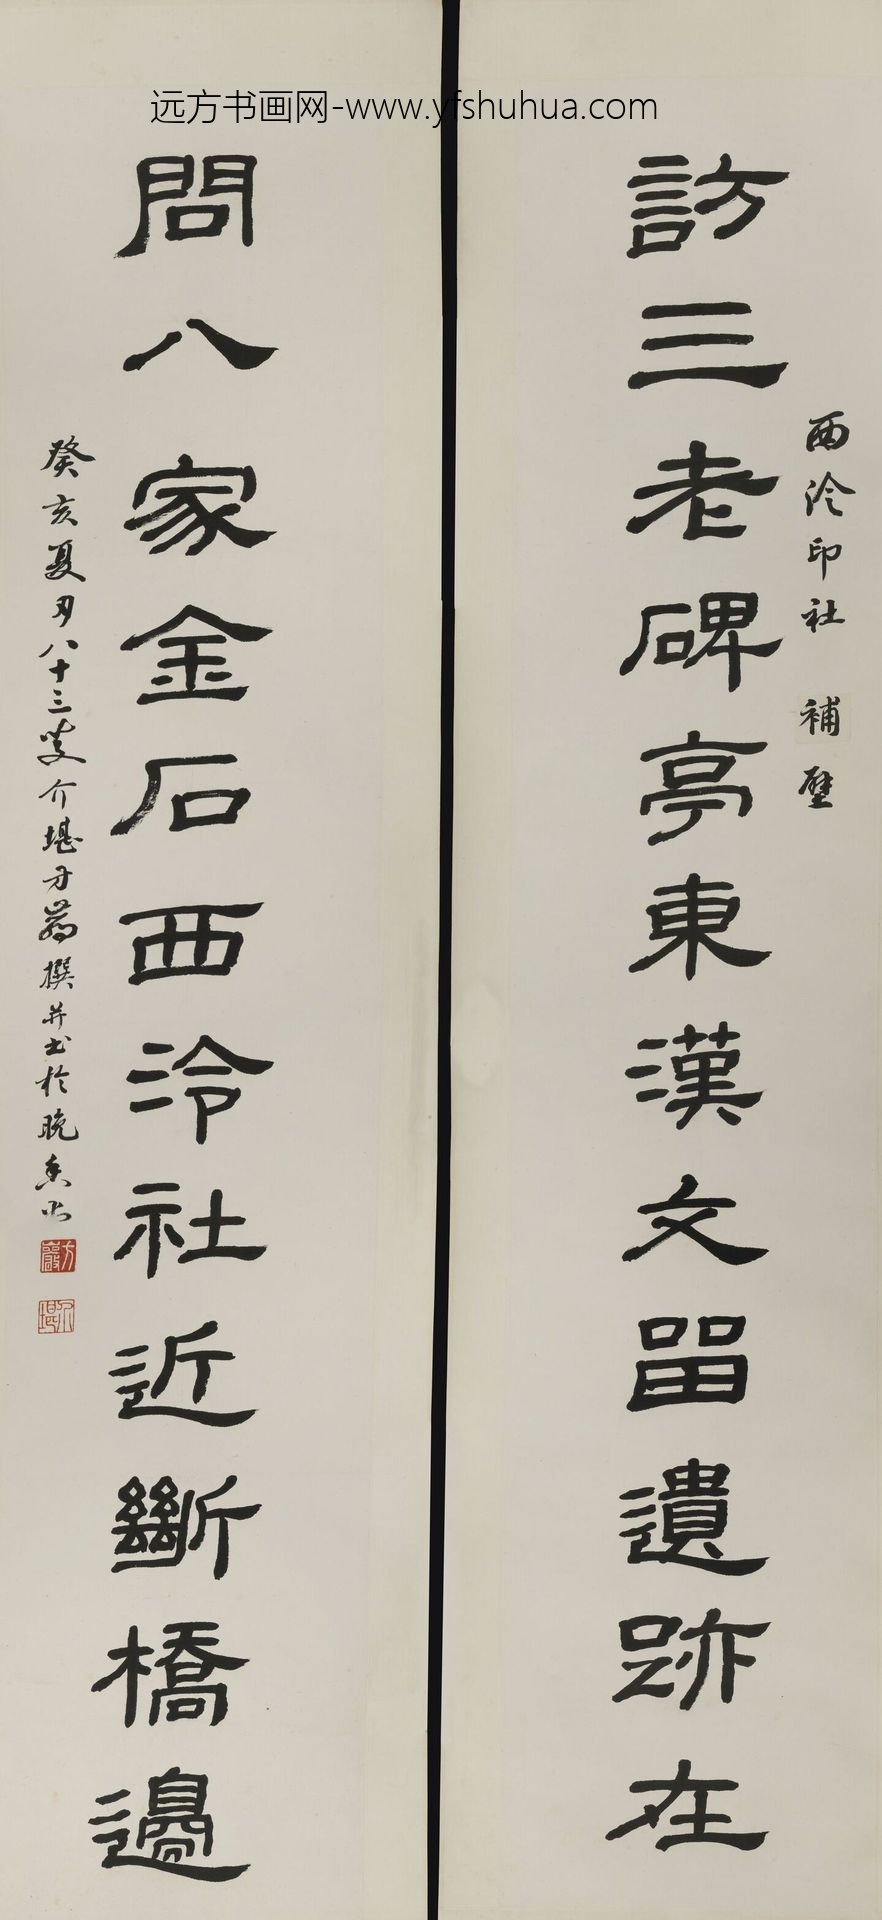 远方书画网-www.yfshuhua.com
西泠印社 補壁
訪三老碑亭東漢文留遺跡在
問八家金石西泠社近斷橋邊
癸亥夏月八十三叟介堪方巖撰并书於晚香
方巖
介堪